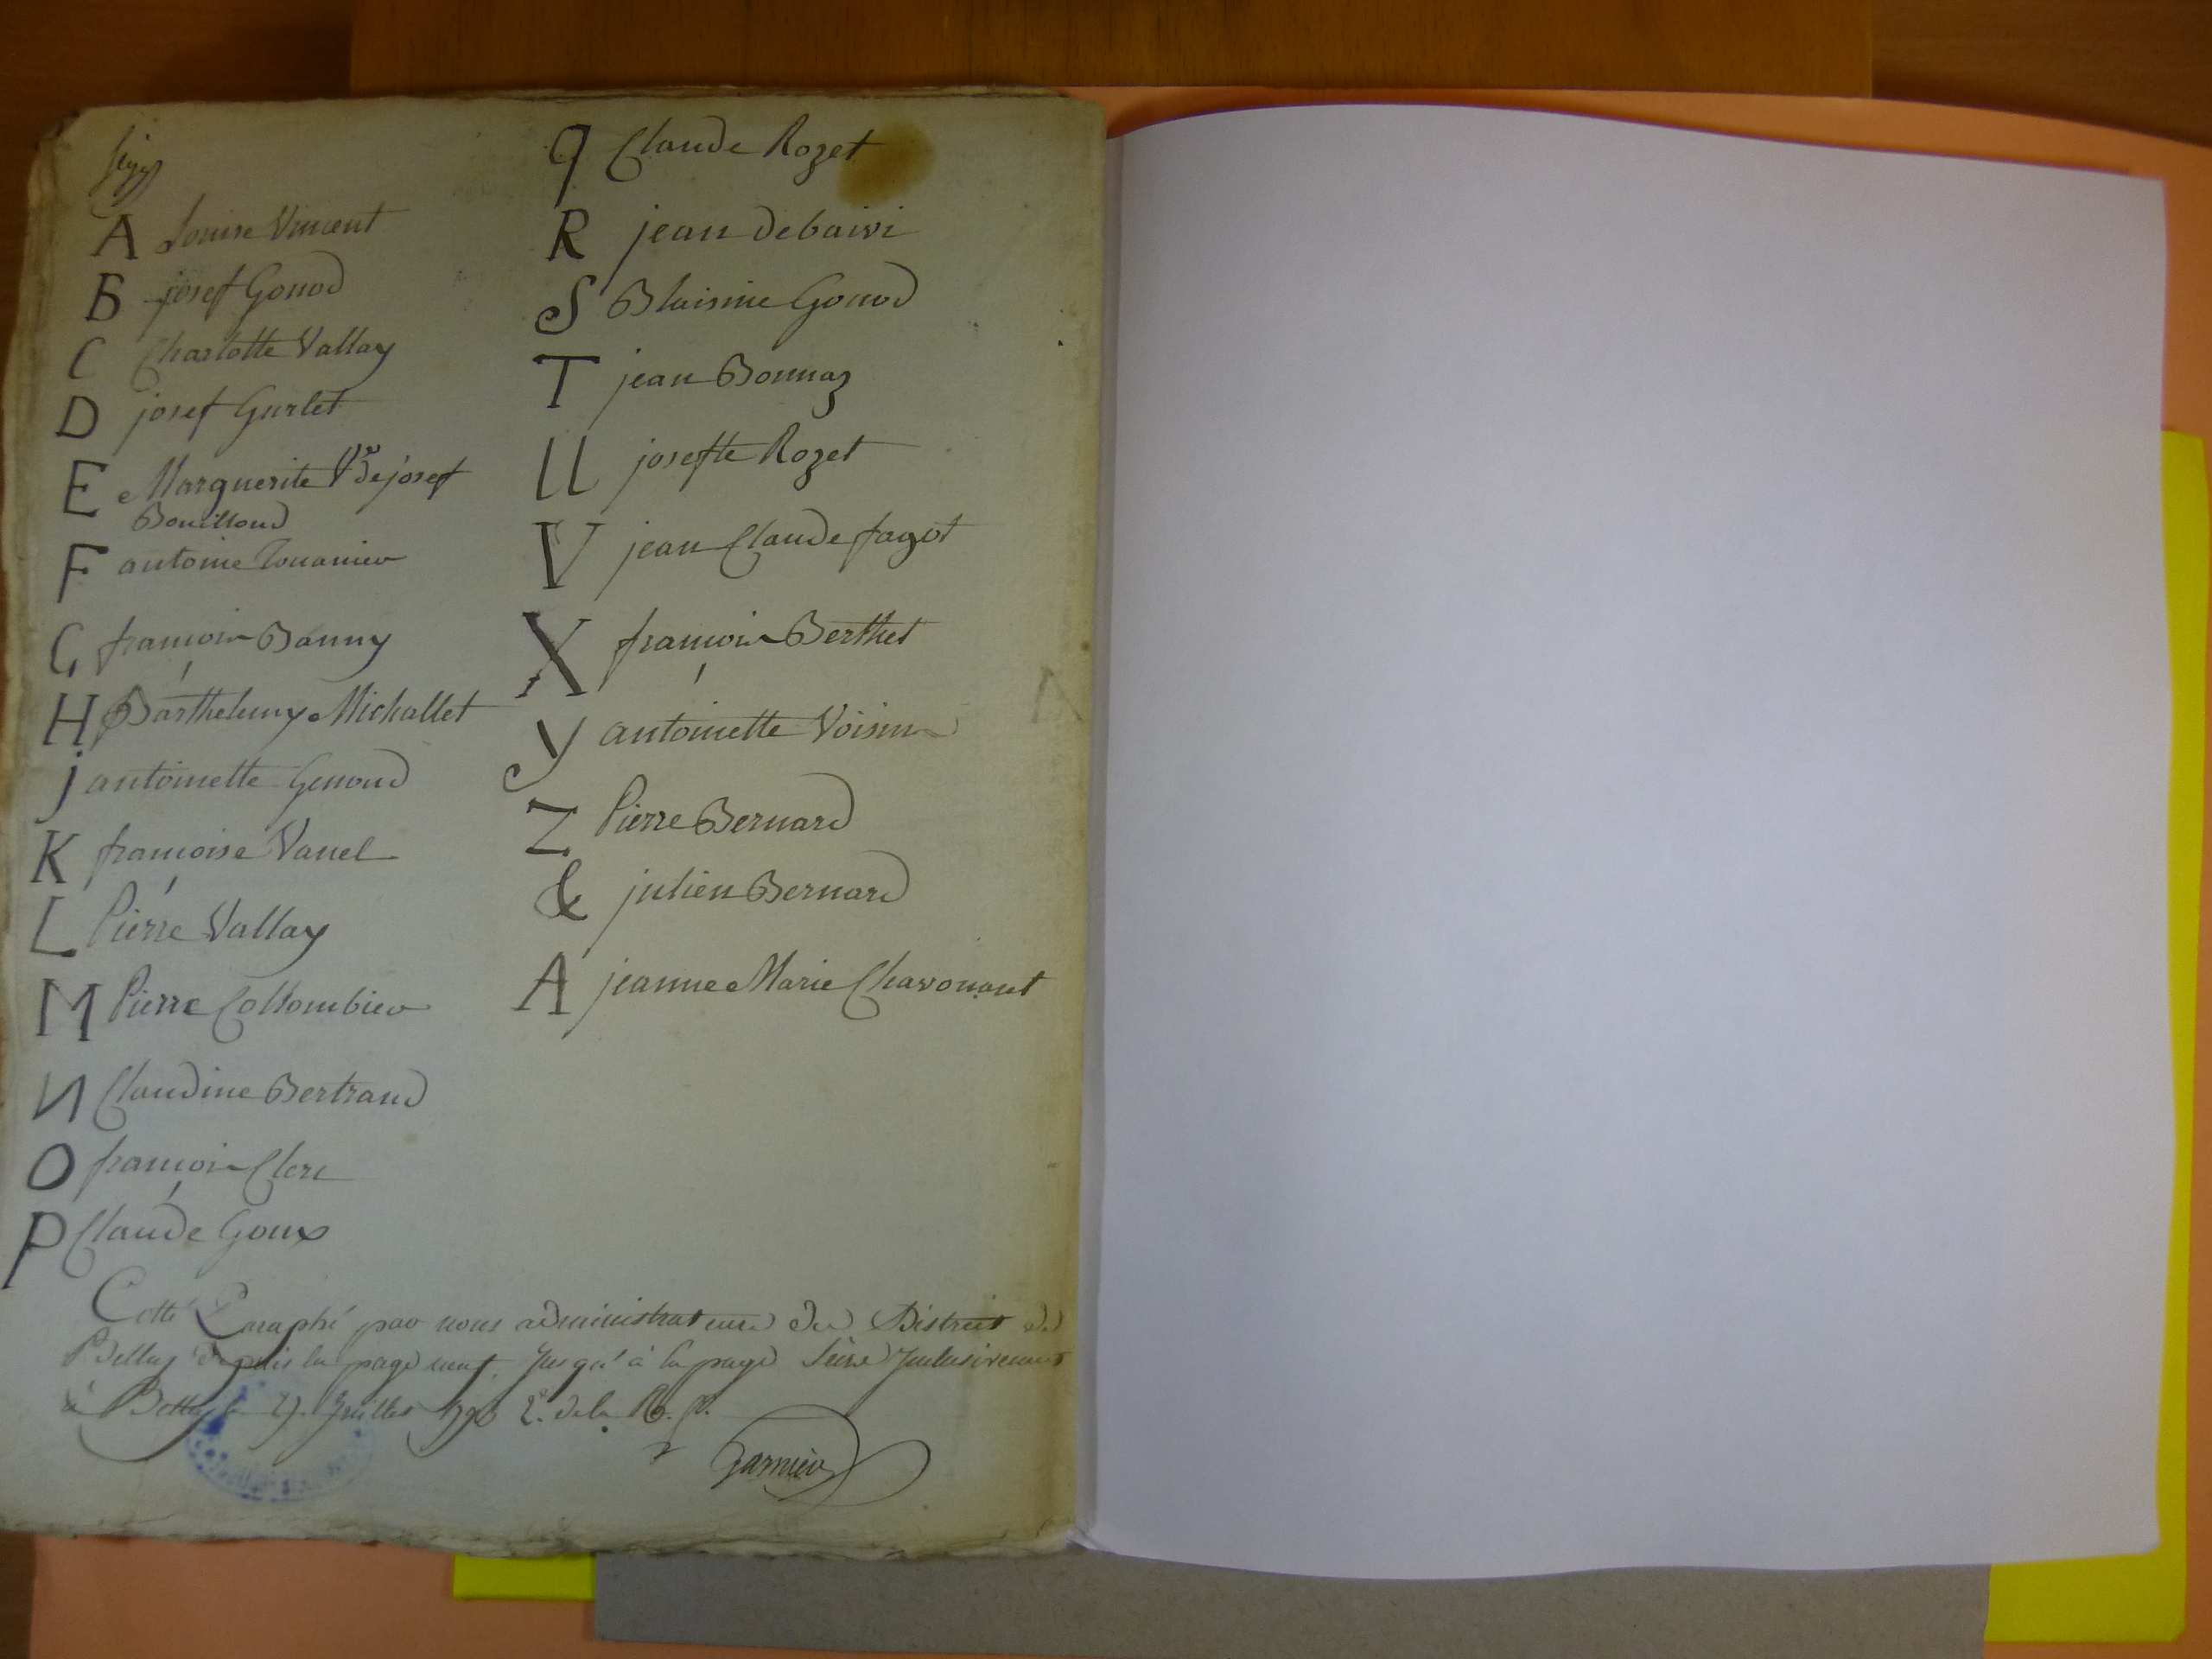 A Louise Vincent
B josef Gonod
C Charlotte Vallay
D josef Gurlet
E Marguerite Vve de josef
Bouilloud
F antoine
G françois Banny
H Barthelemy Michallet
j antoinette Genoud
K françoise Vanel
L Pierre Vallay
M Pierre Collombier
N Claudine Bertrand
O françois Clerc
P Claude Goux
q Claude Rozet
R jean Debaivi
S Blaisine Gonod
T jean Bonnaz
U josefte Rozet
V jean Claude fagot
X françois Berthet
y antoinette Voisin
Z Pierre Bernard
& julien Bernard
A jeanne Marie Chavonant
Cotté Paraphé par nous administrateur du District de
Belley depuis la page neuf, jusqu'à la page Seize Inclusivement
à Belley le 27. Juillet 1793 2e. de la R. f.
Garnier